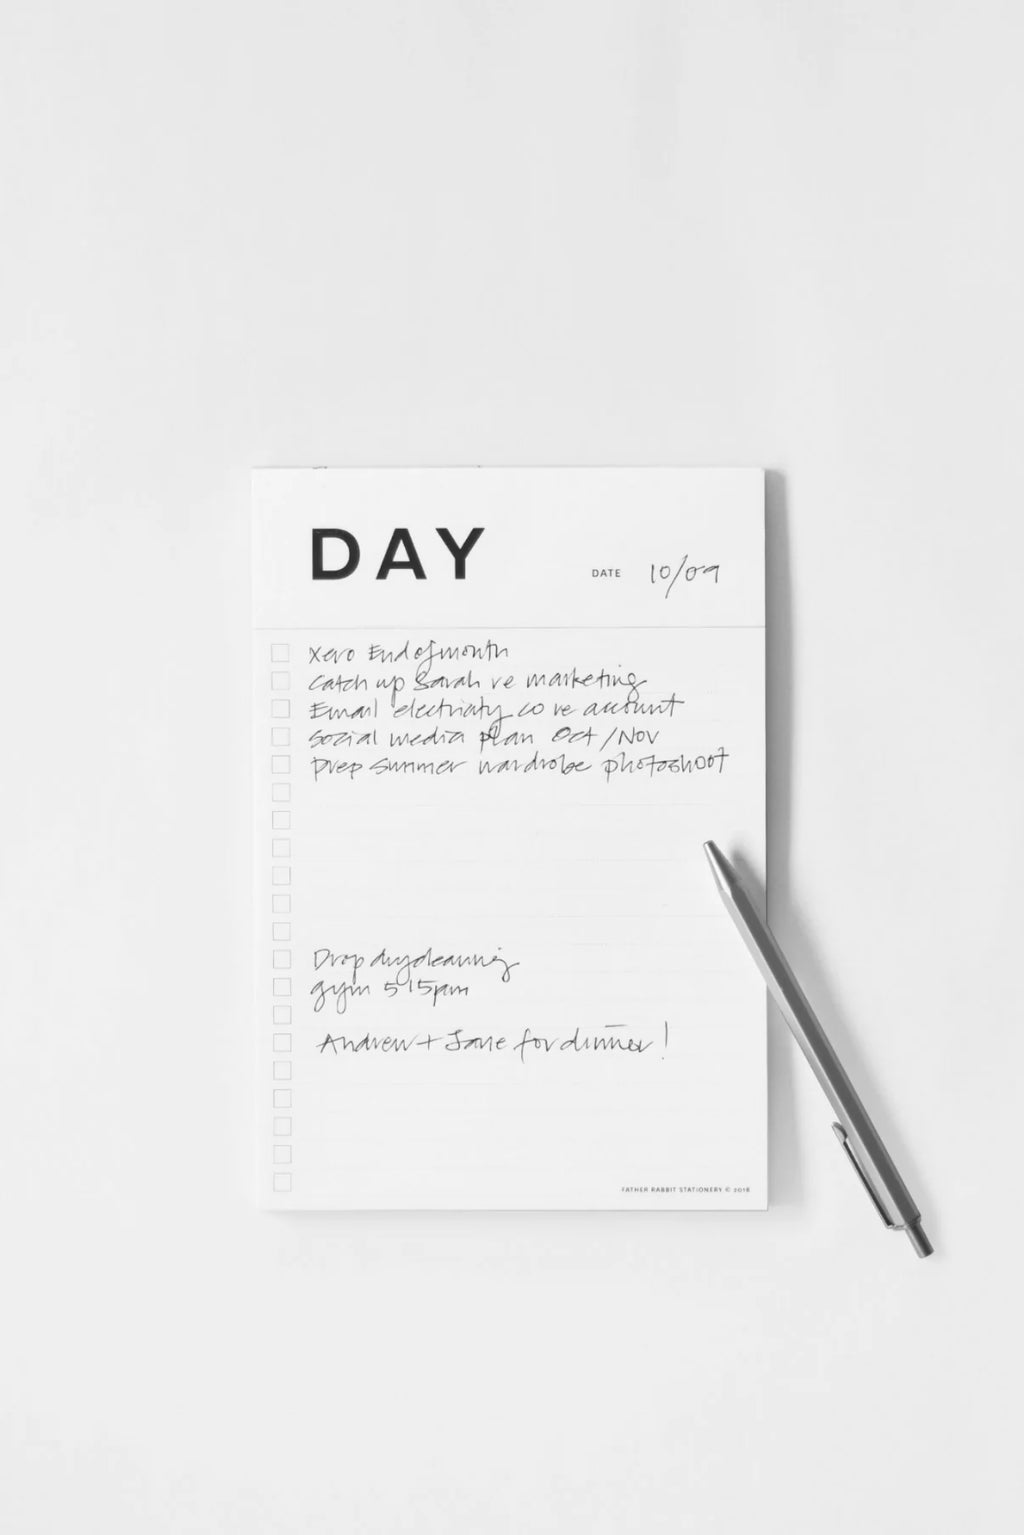 DAY
DATE 10/09
Xero End of month
Catch up Sarah re marketing
Email electricity co re account
Social media plan Oct/Nov
Prep Summer wardrobe photoshoot
Drop drycleaning
gym 515pm
Andrew + Jane for dinner!
FATHER RABBIT STATIONERY © 2018